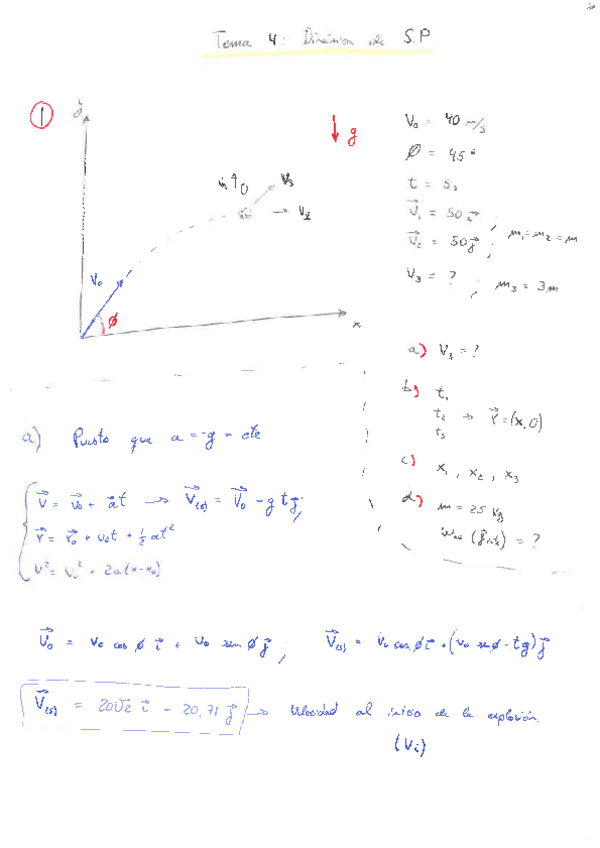 Tema 4: Dinámica de S.P
1
y
g
V₀ = 40 m/s
Ø = 45°
t = 5s
V⃗₁ = 50 i⃗
V⃗₂ = 50 j⃗ ; m₁ = m₂ = m
V₃ = ? ; m₃ = 3m
V₃
V₂
V₀
Ø
x
a) V₃ = ?
b) t₁
t₂ → r⃗ = (x, 0)
t₃
c) x₁, x₂, x₃
d) m = 25 kg
= ?
a) Puesto que a = -g = cte
V⃗ = v⃗₀ + a⃗t → V⃗₍₅₎ = V⃗₀ - g t j⃗;
r⃗ = r⃗₀ + v₀t + ½ at²
v² = v₀² + 2a(x-x₀)
V⃗₀ = v₀ cos Ø i⃗ + v₀ sin Ø j⃗; V⃗₍₅₎ = v₀ cos Ø i⃗ + (v₀ sin Ø - tg) j⃗
V⃗₍₅₎ = 20√2 i⃗ - 20,71 j⃗ → Velocidad al inicio de la explosión
(Vi)